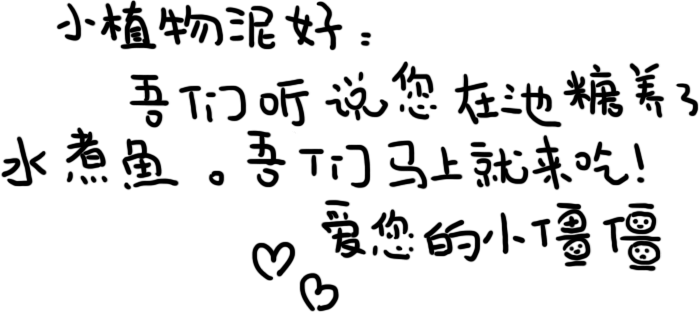 小植物泥好：
吾们听说您在池糖养了
水煮鱼。吾们马上就来吃！
爱您的小僵僵